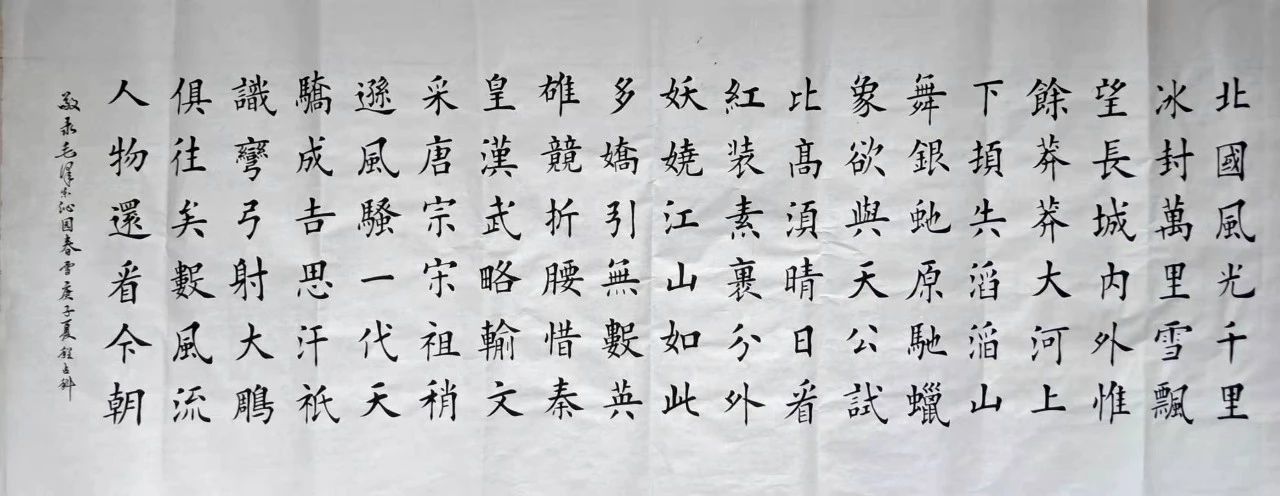 北國風光千里
冰封萬里雪飄
望長城内外惟
餘莽莽大河上
下頓失滔滔山
舞銀虵原馳蠟
象欲與天公試
比髙湏晴日看
紅装素裹分外
妖嬈江山如此
多嬌引無數英
雄競折腰惜秦
皇漢武略輸文
采唐宗宋祖稍
遜風騷一代天
驕成吉思汗祇
識彎弓射大鵰
俱往矣數風流
人物還看今朝
敬录毛澤东沁园春雪庚子夏